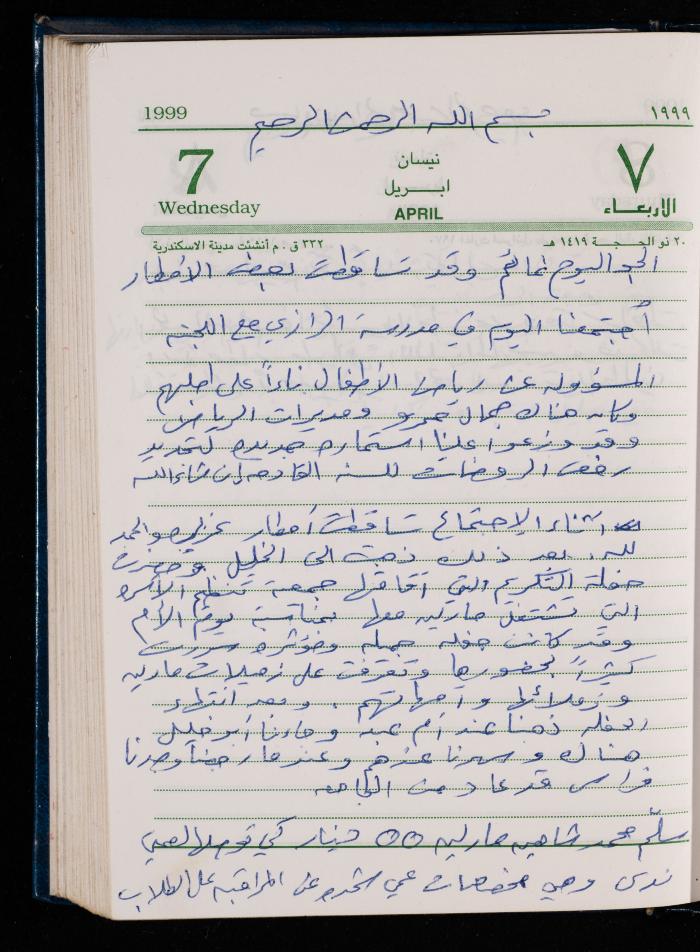 بسم الله الرحمن الرحيم
1999 ١٩٩٩
7 نيسان ٧
ابريل
Wednesday APRIL الاربعاء
٢٠ ذو الحجة ١٤١٩ هـ ٣٣٢ ق . م أنشئت مدينة الاسكندرية
الجو اليوم غائم وقد تساقطت بعض الأمطار
أجتمعنا اليوم في مدرسة الرازي مع اللجنة
المسؤوله عن رياض الأطفال بناءاً على طلبهم
وكان هناك جمال ومديرات الرياض
وقد وزعوا علينا استماره جديده لتجديد
رخص الروضات للسنه القادمه إن شاء الله
اثناء الاجتماع تساقطت أمطار غزيره والحمد
لله. بعد ذلك ذهبت الى الخليل وحضرت
حفلة التكريم التي أقامتها جمعية تنظيم الأسره
التي تشتغل مارليه معها بمناسبة يوم الأم
وقد كانت حفله جميله ومؤثره سررت
كثيراً بحضورها وتعرفت على زميلات مارليه
وزملائها وأمهاتهم . وبعد انتهاء
الحفله ذهبنا عند أم عبد وجاءنا أبو خليل
هناك وسهرنا عندهم وعندما رجعنا وجدنا
فراس قد عاد من الجامعه
سلّم محمد شاهين مارليه ٥٥ دينار كي توصلها لعمي
ندى وهي مخصصات عمي عن المراقبه على الطلاب